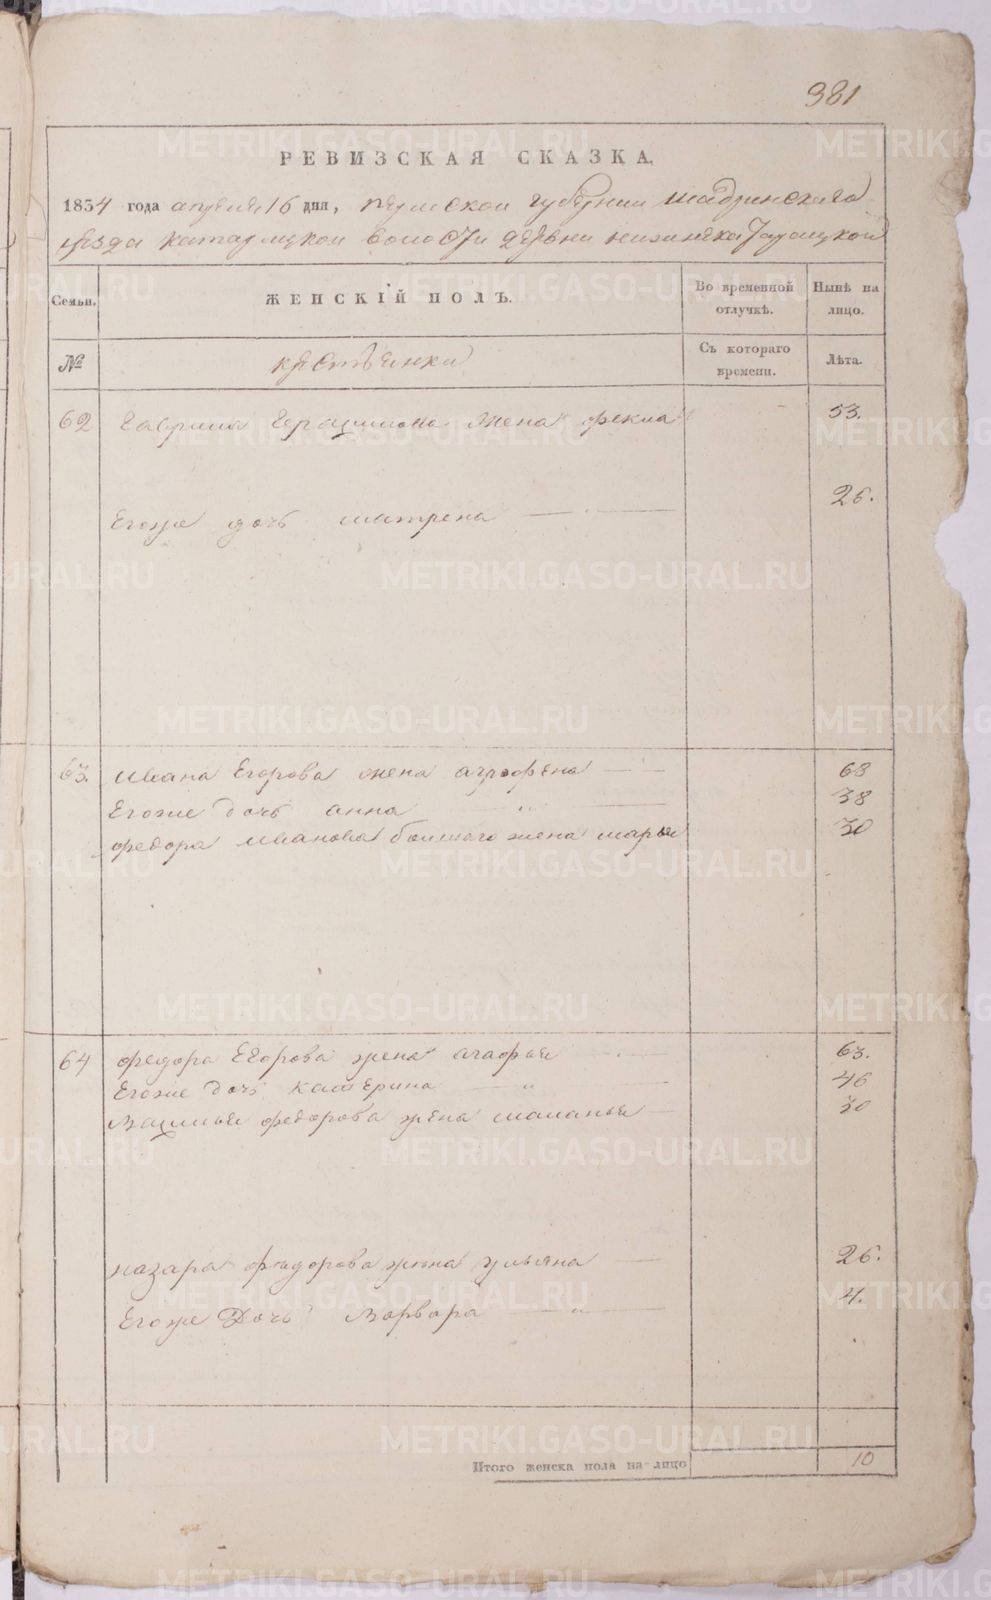 381
РЕВИЗСКАЯ СКАЗКА.
1834 года апреля 16 дня, пермской губернии шадринскаго
уезда катайской волости деревни
Семьи. ЖЕНСКІЙ ПОЛЪ. Во временной отлучкѣ. Нынѣ на лицо.
№ крестьянки Съ котораго времени. Лѣта.
62 Гаврила Герасимова жена фекла 53.
Егоже дочь матрена 26.
63. ивана Егорова жена агрофена 68
Егоже дочь анна 38
федора иванова большаго жена марья 30
64 федора Егорова жена агафья 63.
Егоже дочь катерина 46
василья федорова жена маланья 30
назара федорова жена ульяна 26.
Егоже Дочь Варвара 4.
Итого женска пола на-лицо 10
METRIKI.GASO-URAL.RU